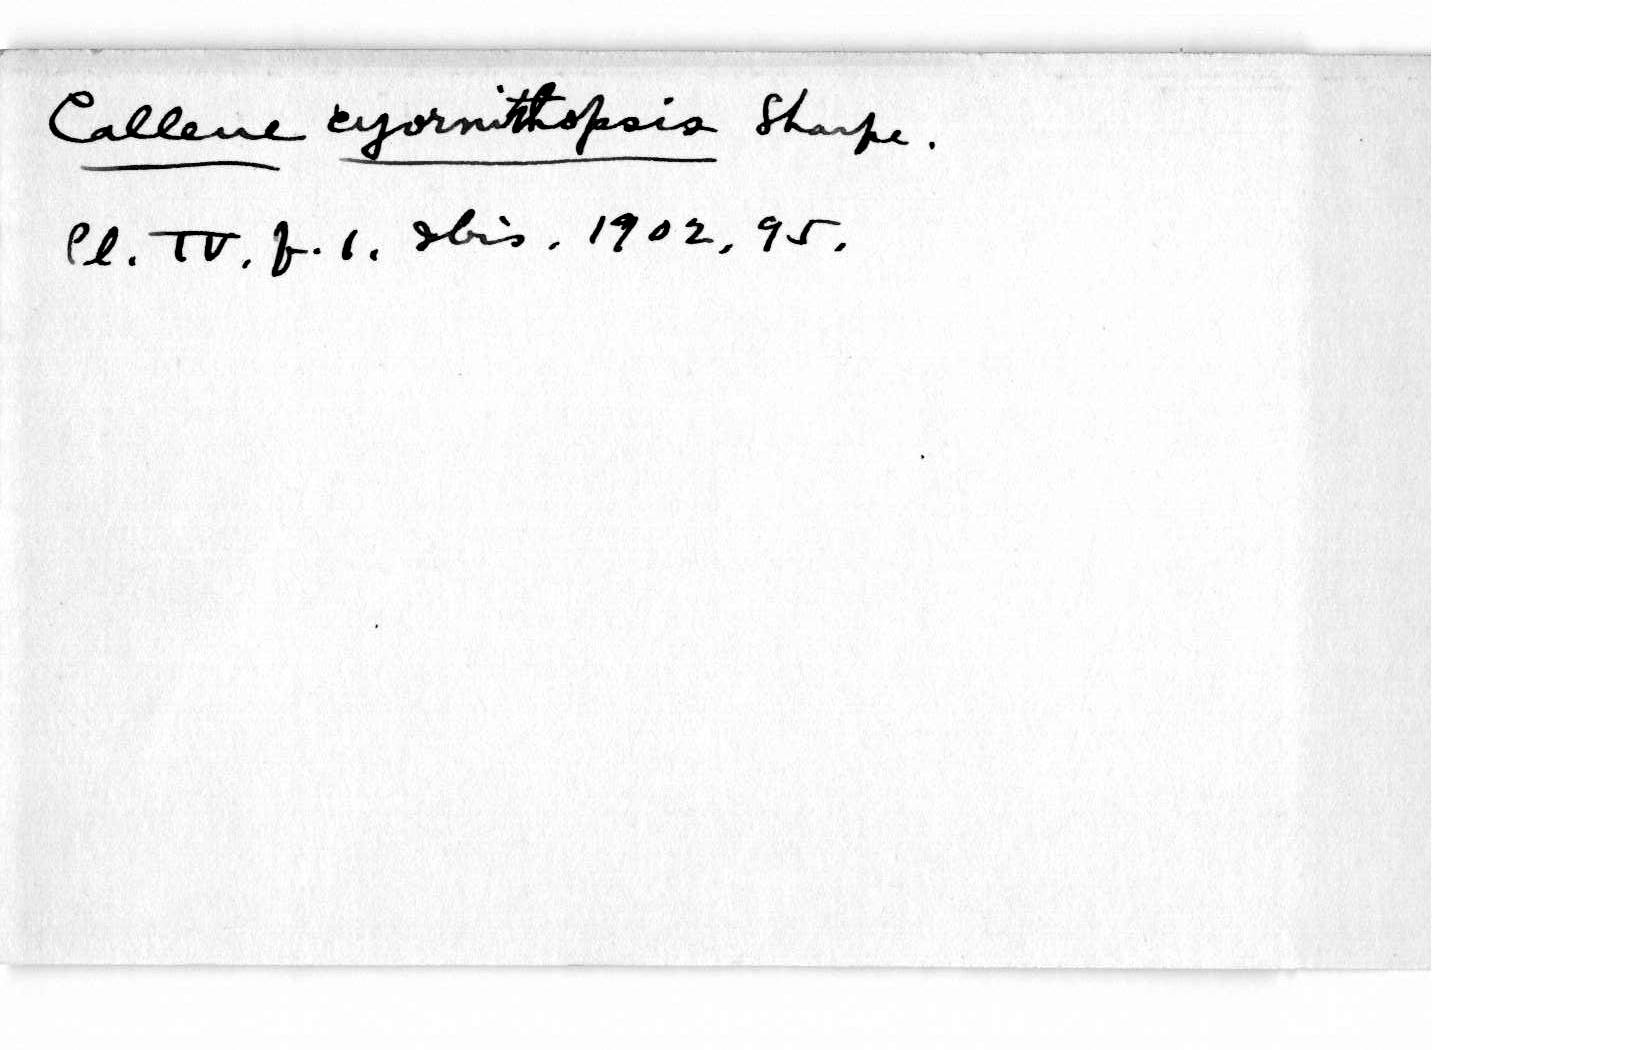 Callene cyornithopsis Sharpe.
Pl. IV. f. 1. Ibis. 1902, 95.